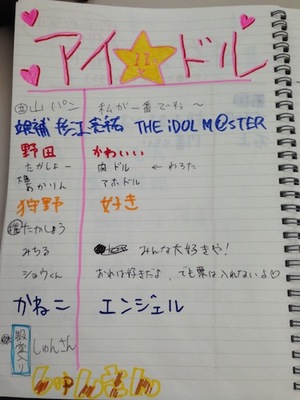 アイ☆ドル
山パン 私が一番ですね〜
候補 THE iDOL M@STER
野田 かわいい
たかしょー 肉ドル ← わろた
かりん アホドル
狩野 好き
たかしょう
みちる みんな大好きや!
ショウくん おれは好きだよ、でも票は入れないよ♡
かねこ エンジェル
殿堂入り しゅんさん